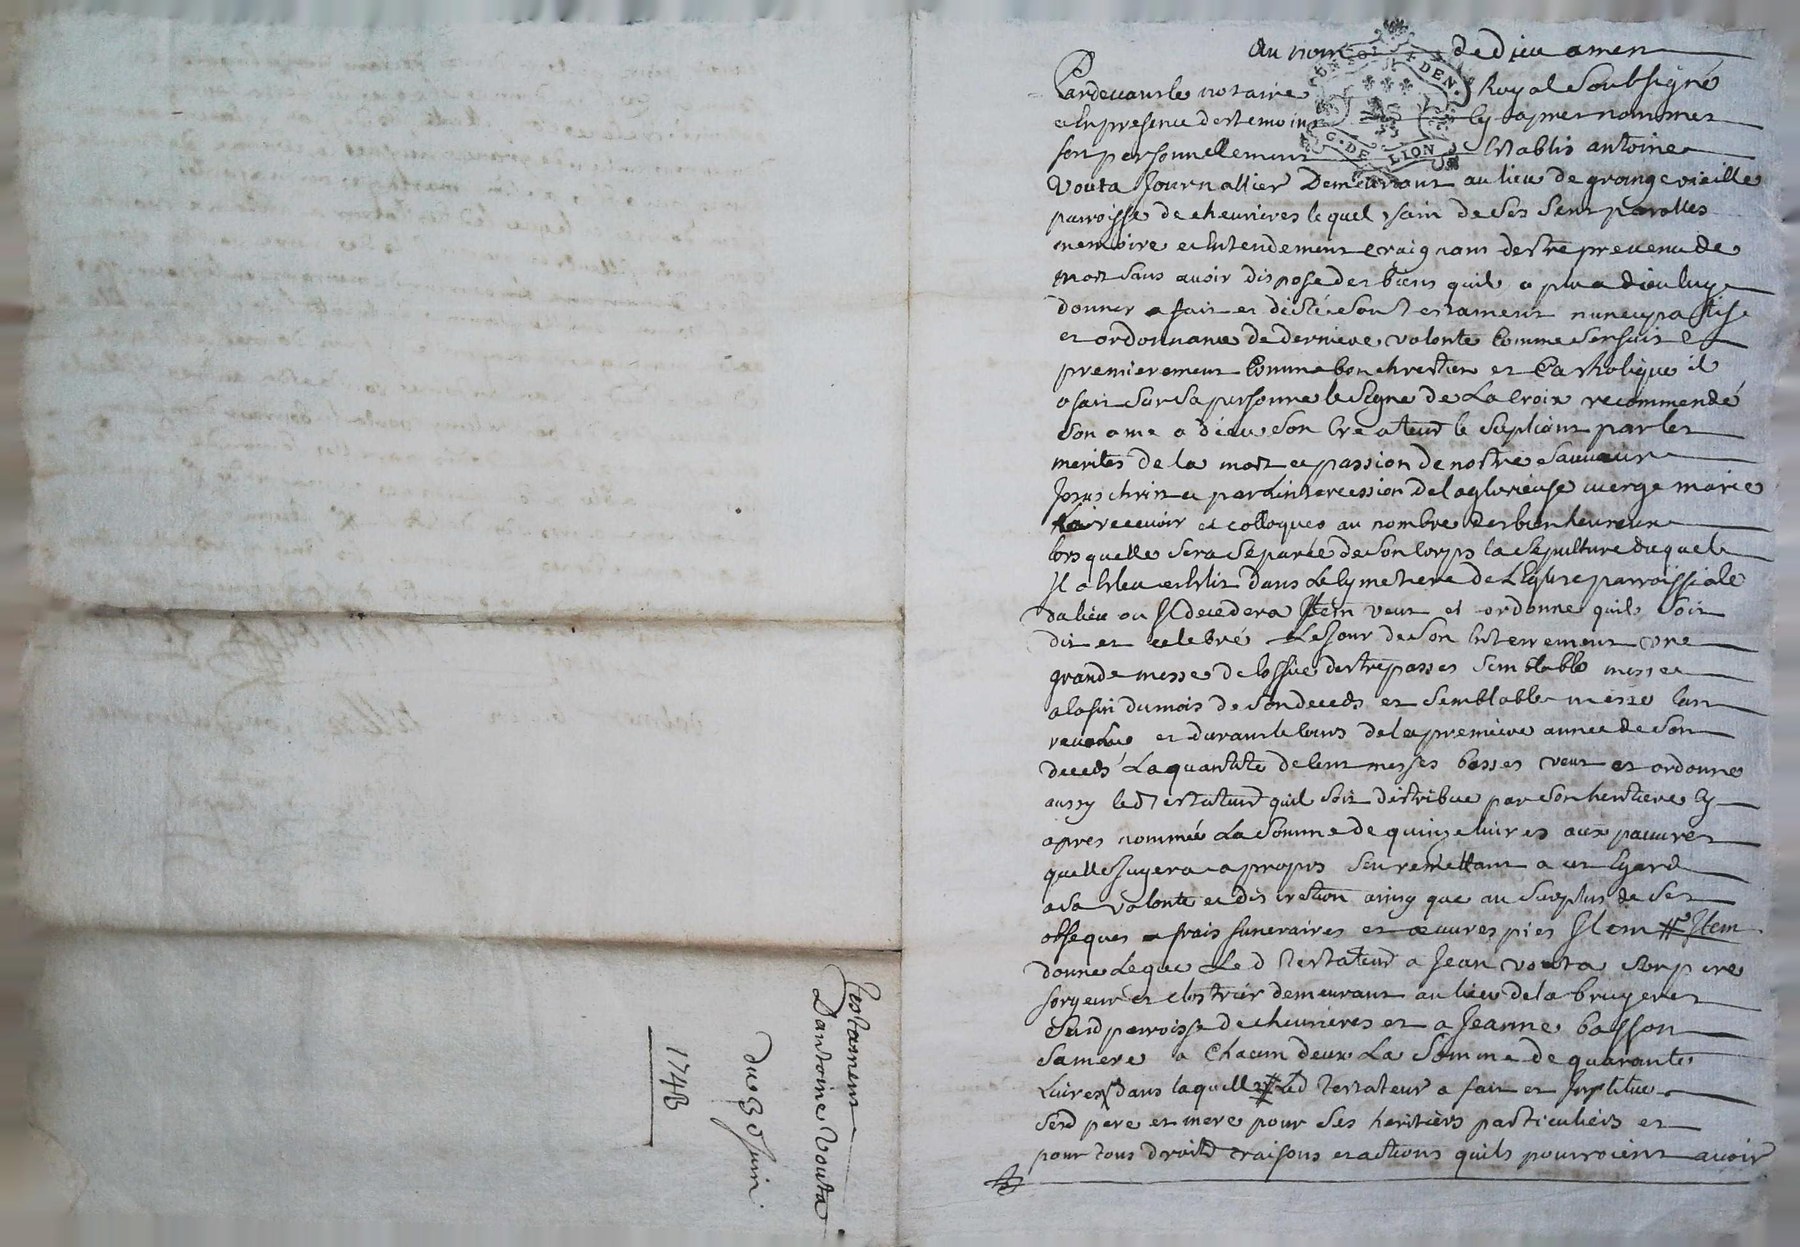 Au nom de Dieu amen
Pardevant le notaire Royal Soubsigné
et En presence des temoins Cy apres nommes
fut personnellement Establis antoine
Vouta Journallier Demeurant au lieu de grange vieille
parroisse de chevrieres lequel sain de Ses Sens parolles
memoire et Entendement craignant destre prevenu de
mort Sans avoir dispose des biens quil a plu a dieu luy
donner a fait et dicté Son testament nuncupatif
et ordonnance de derniere volonté Comme Sensuit Et
premierement Comme bon chrestien et Catholique il
a fait Sur Sa personne le Signe de La Croix recommendé
Son ame a dieu Son Createur le Supliant par les
merites de la mort et passion de nostre Sauveur
Jesus christ et par Lintercession de la glorieuse vierge marie
La recevoir et colloquer au nombre des bienheureux
lors quelle Sera Séparée de Son Corps la Sepulture duquel
Il a Esleu et Eslit dans Le Cymetiere de LEglise parroissiale
du lieu ou Il decedera Item veut et ordonne quil Soit
dit et celebré Le Jour de Son Enterrement une
grande messe de loffice des trepasses Semblable messe
a la fin du mois de Son deceds et Semblable messe lan
revolu et durant le Cours de la premiere année de Son
deceds La quantité de Cent messes basses veut et ordonne
aussy led testateur quil Soit distribué par Son heritiere Cy
apres nommée La Somme de quinze livres aux pauvres
quelle Jugera a propos Sen remettant a cet Egard
a Sa volonte et discretion ainsy que au Surplus de Ses
obseques frais funeraires et œuvres pies Item Item
donne Legue Le d testateur a Jean vouta Son pere
forgeur et clostrier demeurant au lieu de la bruyere
Susd parroisse de chevrieres et a Jeanne basson
Sa mere a Chacun deux La Somme de quarante
Livres dans laquelle Led testateur a fait et Institue
Sesd pere et mere pour Ses heritiers particuliers et
pour tous droits raisons et actions quils pourroient avoir
Testament
Dantoine Vouta
du 3e Juin
1748